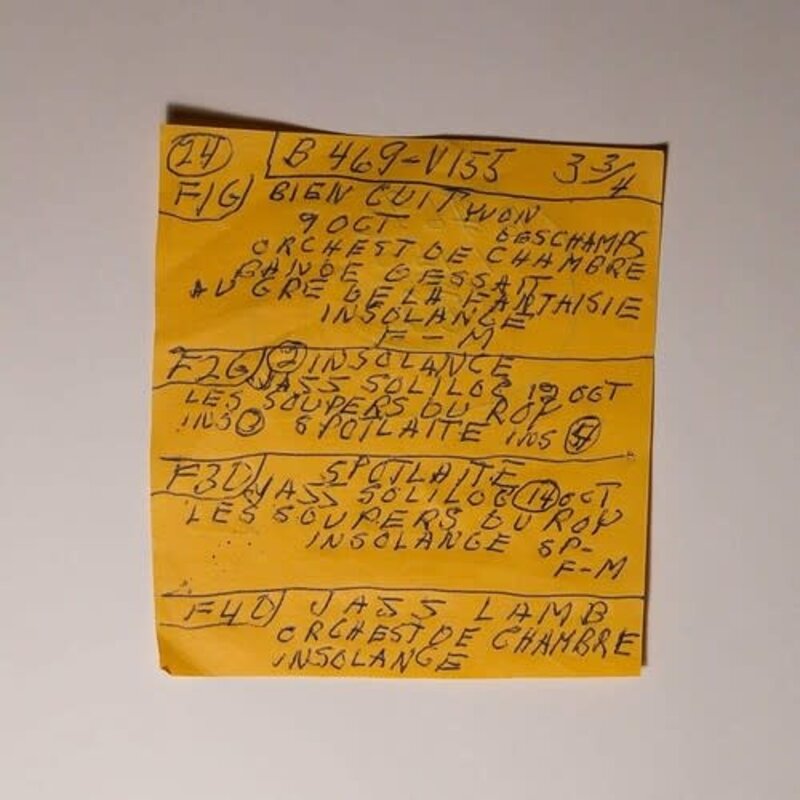 24 B 469-V155 3 3/4
F1G BIEN CUIT YVON
9 OCT DESCHAMPS
ORCHEST DE CHAMBRE
BANDE DESSAIT
AU GRE DE LA FANTHISIE
INSOLANGE
F-M
F2G 2 INSOLANCE
JASS SOLILOC 19 OCT
LES SOUPERS DU ROY
INS SPOTLAITE INS
F3D SPOTLAITE
JASS SOLILOC 14 OCT
LES SOUPERS DU ROY
INSOLANGE SP-
F-M
F4D JASS LAMB
ORCHEST DE CHAMBRE
INSOLANGE